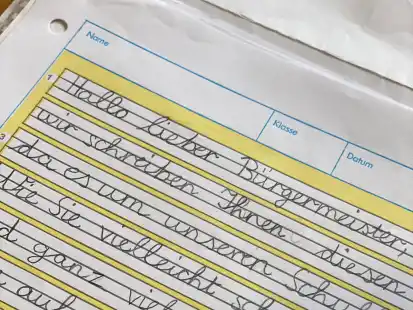 Name Klasse Datum
1
Hallo lieber Bürgermeister,
wir schreiben Ihnen diesen
3
da es um unseren Schul
Sie vielleicht
ganz
auf